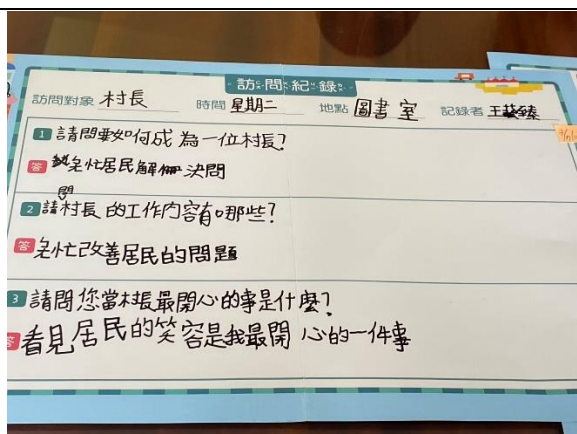 訪問紀錄
訪問對象 村長 時間 星期二 地點 圖書室 記錄者 王
1 請問要如何成為一位村長?
答 急忙居民解決問
2 請問村長的工作內容有哪些?
答 急忙改善居民的問題
3 請問您當村長最開心的事是什麼?
答 看見居民的笑容是我最開心的一件事